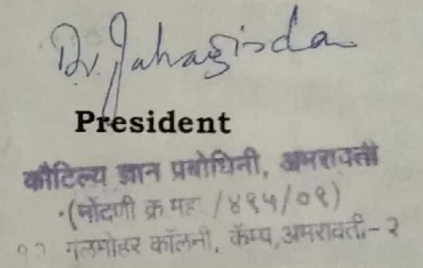 Dr. Jahagirdar
President
कौटिल्य ज्ञान प्रबोधिनी, अमरावती
(नोंदणी क्र मह /४१५/०१)
गुलमोहर कॉलनी, कॅम्प, अमरावती-२